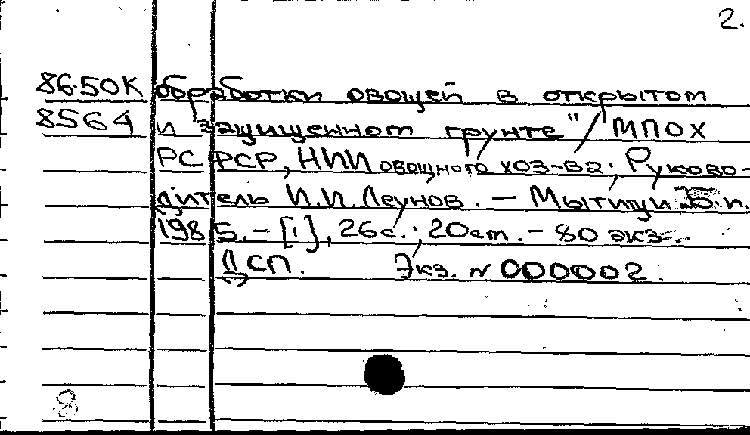 2.
86-50К обработки овощей в открытом
8564 и защищенном грунте"/МПОХ
РСФСР, НИИ овощного хоз-ва; Руково-
дитель И.И. Леунов. – Мытищи, Б.и.
1985. – [1], 26с.; 20см. – 80 экз.
ДСП. Экз. № 000002.
8